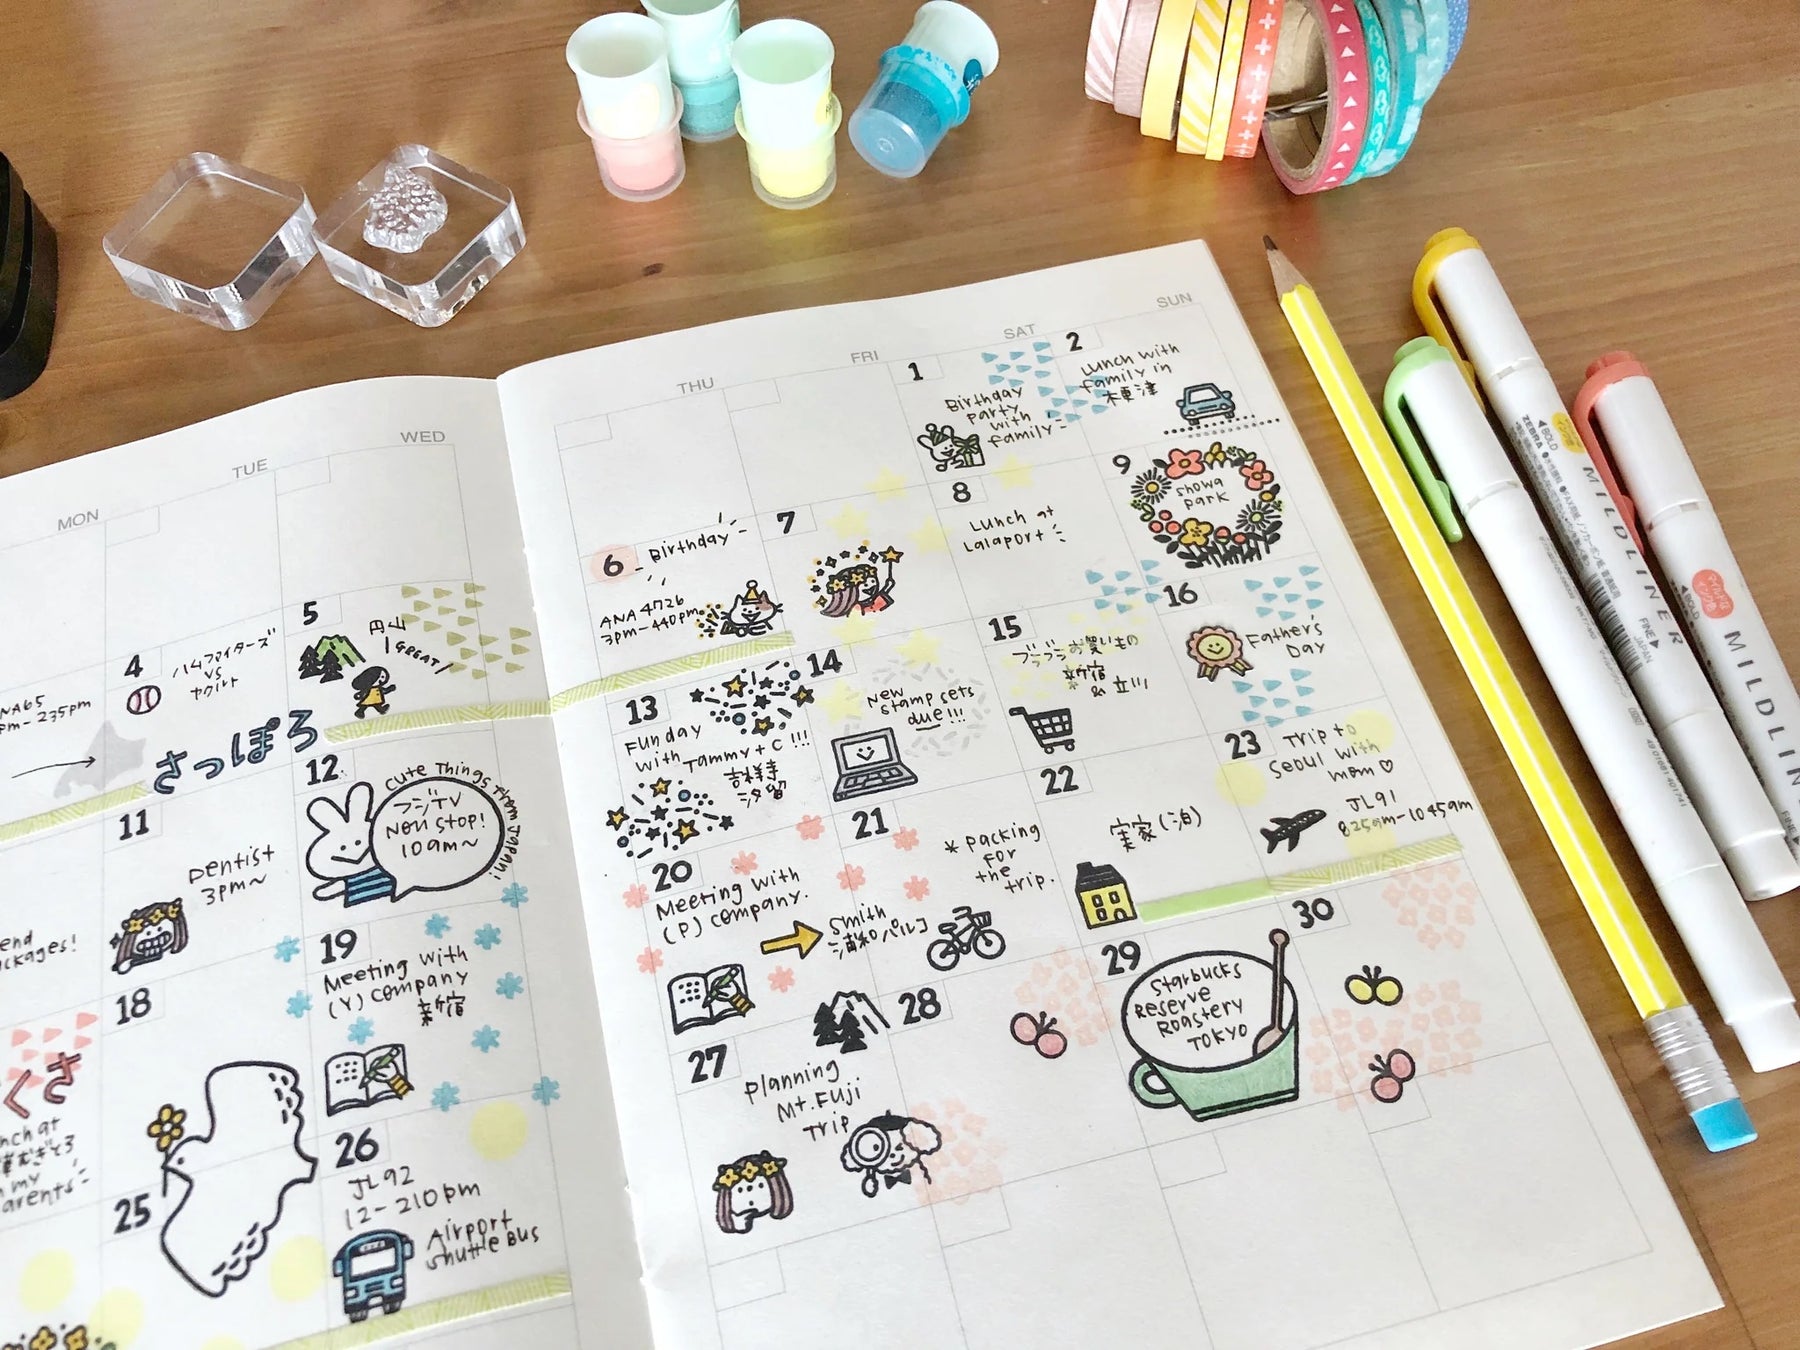 MON
TUE
WED
THU
FRI
SAT
SUN
1
Birthday
party
with
family
2
Lunch with
family in
木更津
NA65
pm-235pm
4
ハムファイターズ
VS
ヤクルト
さっぽろ
5
円山
GREAT
6
Birthday
ANA4726
3pm-440pm
7
8
Lunch at
Lalaport
9
Showa
park
11
Dentist
3pm~
end
ckages!
12
Cute Things From Japan!
フジTV
Non stop!
10am~
13
Funday
with Tammy + C !!!
吉祥寺
汐留
14
New
stamp sets
due!!!
15
ブラブラお買いもの
新宿
& 立川
16
Father's
Day
くさ
nch at
my
arents
18
19
Meeting with
(Y) company
新宿
20
Meeting with
(P) company.
Smith
浦和パルコ
21
* packing
for
the
trip.
22
実家(泊)
23
Trip to
Seoul with
mom♡
JL91
825am-1045am
25
26
JL92
12-210pm
Airport
Shuttle Bus
27
Planning
Mt.Fuji
Trip
28
29
Starbucks
Reserve
Roastery
TOKYO
30
BOLD
ZEBRA
MILDLINER
FINE
JAPAN
BOLD
マイルドな
インク色
MILDLIN
FINE
49 01681 401741